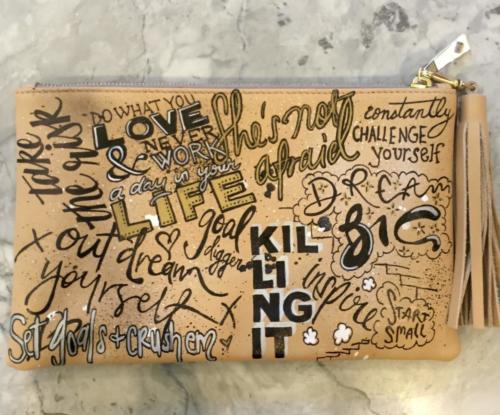 take
the risk
DO WHAT YOU
LOVE
NEVER
& WORK
a day in your
LIFE
She's not
afraid
constantly
CHALLENGE
yourself
DREAM
BIG
x out dream
yourself x
goal
digger
KIL
LI
NG
IT
inspire
START
SMALL
Set goals + crush em